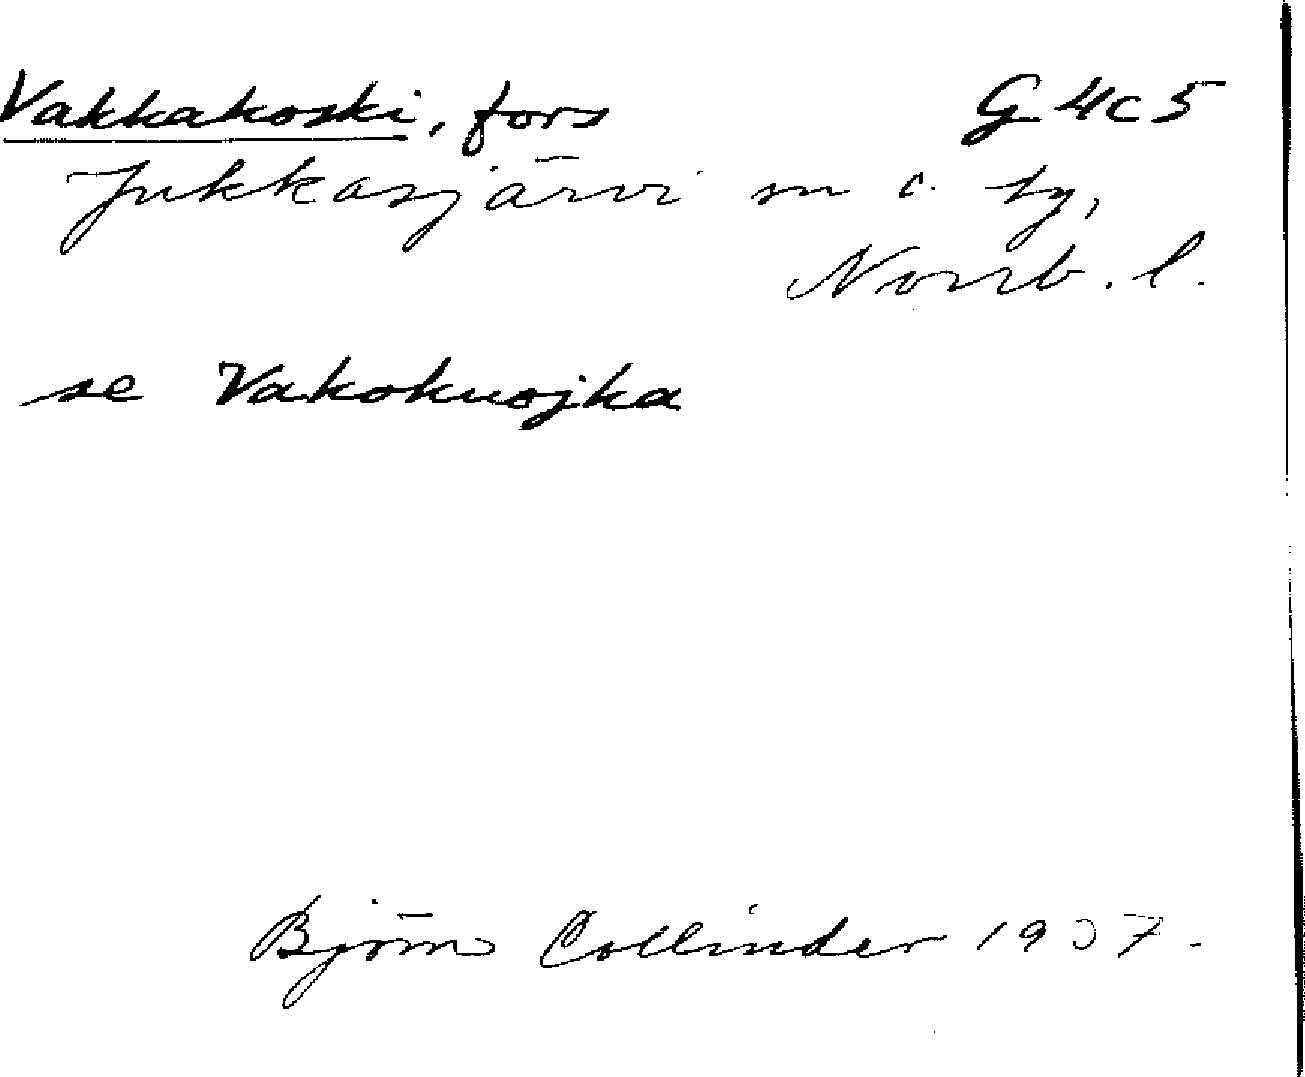 Vakkakoski, fors G 4c 5
Jukkasjärvi sn o. tg,
Norrb. l.
se Vakokuojka
Björn Collinder 1937.